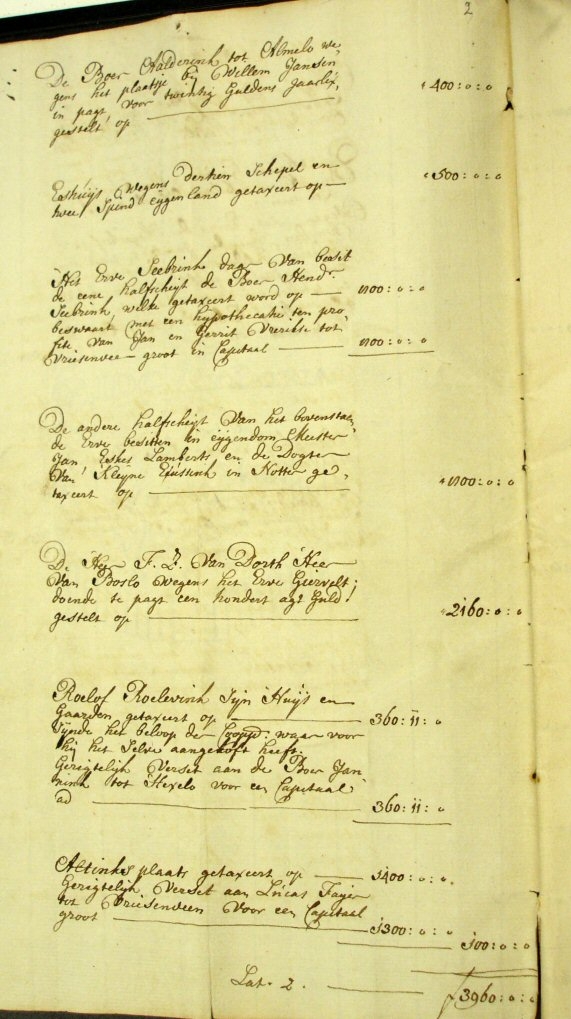 2
De Boer Aalderink tot Almelo we,
gens het plaatsje bij Willem Jansen
in pagt, voor twintig Guldens Jaarlix,
gestelt op — 400:0:0
Eshuijs wegens dertien Schepel en
twee Spind eijgenland getaxeert op — 500:0:0
Het Erve Seebrink daar van besit
de eene halfscheijt de Boer Hendr
Seebrink, welke getaxeert word op — 1100:0:0
beswaart met een hypothecatie ten pro
fite van Jan en Gerrit Vreriks tot
Vriesenvee— groot in Capitaal — 1100:0:0
De andere halfscheijt van het bovenstaen,
de Erve besitten in eijgendom Meester
Jan Eskes Lamberts en de Dogter
van Kleijne in Notter ge,
taxeert op — 1100:0:0
De Heer F. Van Dorth Heer
van Boslo wegens het Erve Giervelt;
doende te pagt een hondert agt Guld!
gestelt op — 2160:0:0
Roelof Roelevink Sijn Huijs en
Gaarden getaxeert op — 360:11:0
Sijnde het beloop der waar voor
hij het Selve aangekoft heeft.
Gerigtelijk Verset aan de Boer Jan
nink tot Hexelo voor een Capitaal
ad — 360:11:0
Altinks plaats getaxeert op — 1400:0:0.
Gerigtelijk Verset aan Lucas Fayer
tot Vriesenveen voor een Capitaal
groot — 1300:0:0
100:0:0
Lat. 2. — f3960:0:0